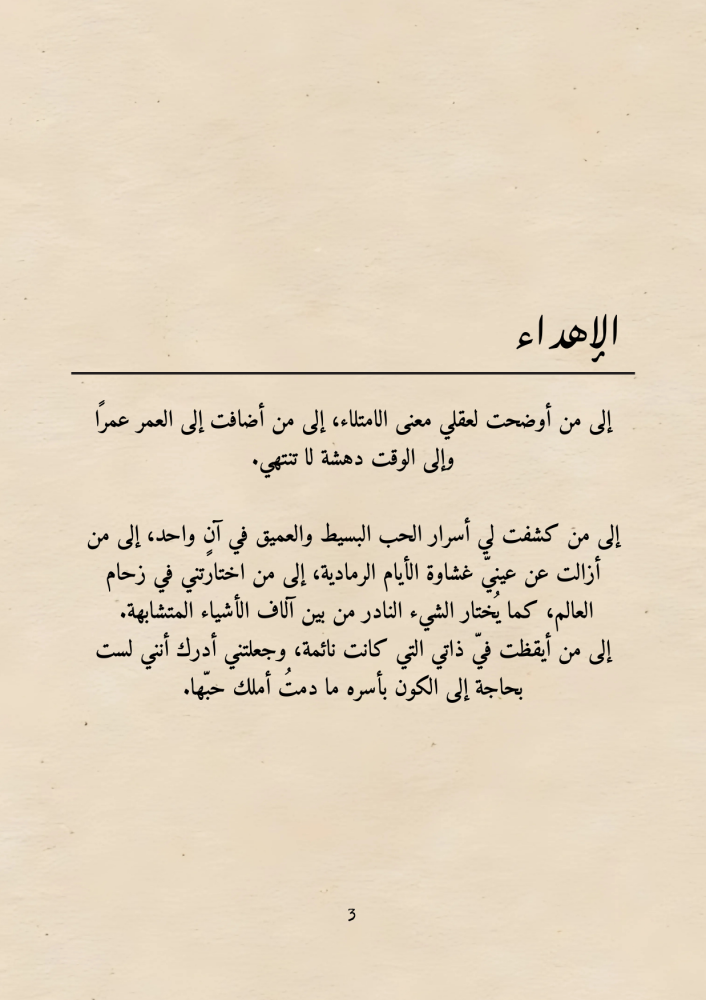 الإهداء
إلى من أوضحت لعقلي معنى الامتلاء، إلى من أضافت إلى العمر عمرًا
وإلى الوقت دهشة لا تنتهي.
إلى من كشفت لي أسرار الحب البسيط والعميق في آنٍ واحد، إلى من
أزالت عن عينيّ غشاوة الأيام الرمادية، إلى من اختارتني في زحام
العالم، كما يُختار الشيء النادر من بين آلاف الأشياء المتشابهة.
إلى من أيقظت فيّ ذاتي التي كانت نائمة، وجعلتني أدرك أنني لست
بحاجة إلى الكون بأسره ما دمتُ أملك حبّها.
3